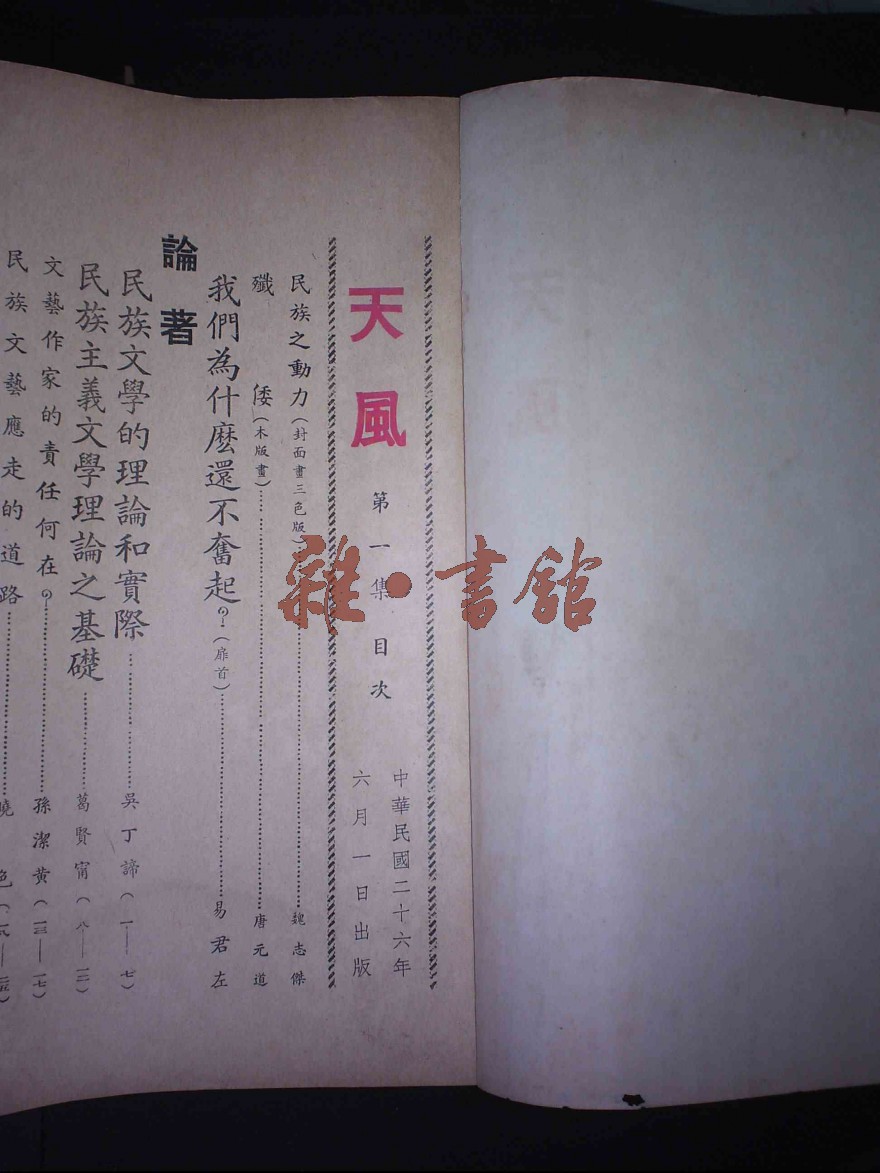 天風 第一集 目次
中華民國二十六年
六月一日出版
民族之動力(封面畫三色版)…………魏志傑
殲倭(木版畫)…………唐元道
我們為什麽還不奮起?(扉首)…………易君左
論著
民族文學的理論和實際…………吳丁諦(一—七)
民族主義文學理論之基礎…………葛賢甯(八—一三)
文藝作家的責任何在?…………孫潔黄(一三—一七)
民族文藝應走的道路…………曉色
雜·書館